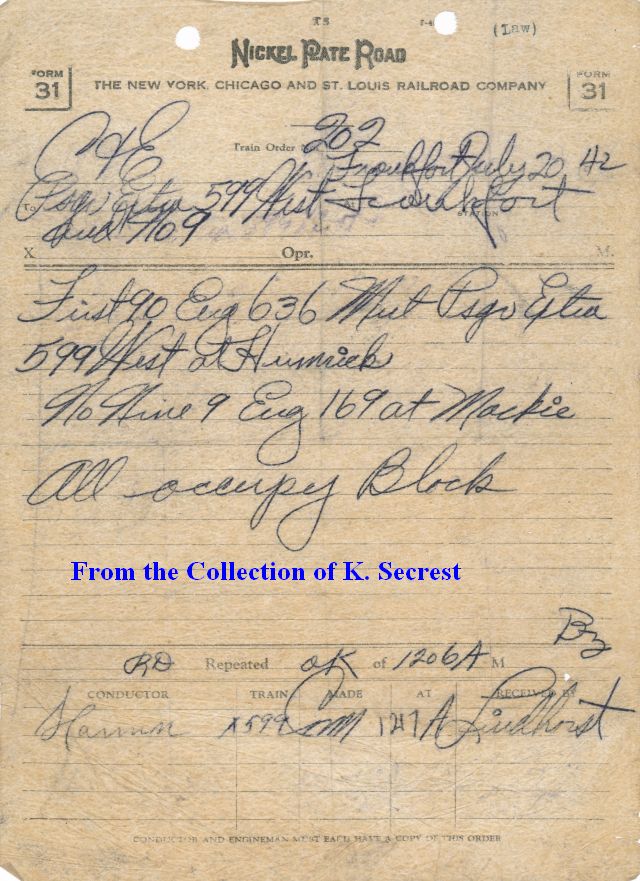 TS
(Law)
NICKEL PLATE ROAD
FORM 31
THE NEW YORK, CHICAGO AND ST. LOUIS RAILROAD COMPANY
FORM 31
Train Order 202
C&E
Frankfort July 20 42
To Psgr Extra 599 West Frankfort
and No 9
STATION
X Opr. M.
First 90 Eng 636 Meet Psgr Extra
599 West at Humrick
No Nine 9 Eng 169 at Mackie
All occupy Block
From the Collection of K. Secrest
RD Repeated OK of 1206A M
CONDUCTOR TRAIN MADE AT RECEIVED BY
X599 Com 147A Lindhorst
CONDUCTOR AND ENGINEMAN MUST EACH HAVE A COPY OF THIS ORDER